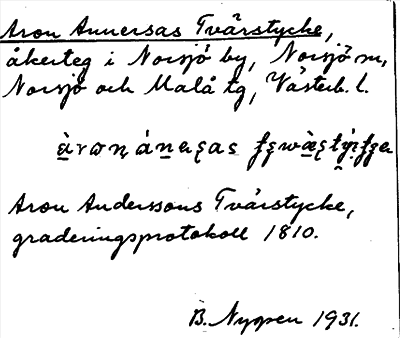 Aron Annersas Tvärstycke,
åkerteg i Norsjö by, Norsjö sn,
Norsjö och Malå tg, Västerb. l.
Aron Anderssons Tvärstycke,
graderingsprotokoll 1810.
B. Nygren 1931.